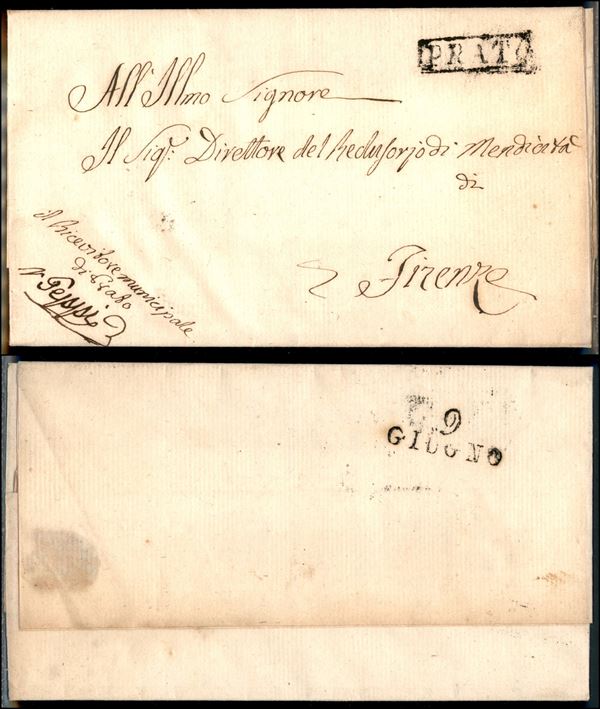 PRATO
All' Illmo Signore
Il Sigr. Direttore del Reclusorjo di Mendicità
di
Firenze
il Ricevitore municipale
di Prato
9
GIUGNO